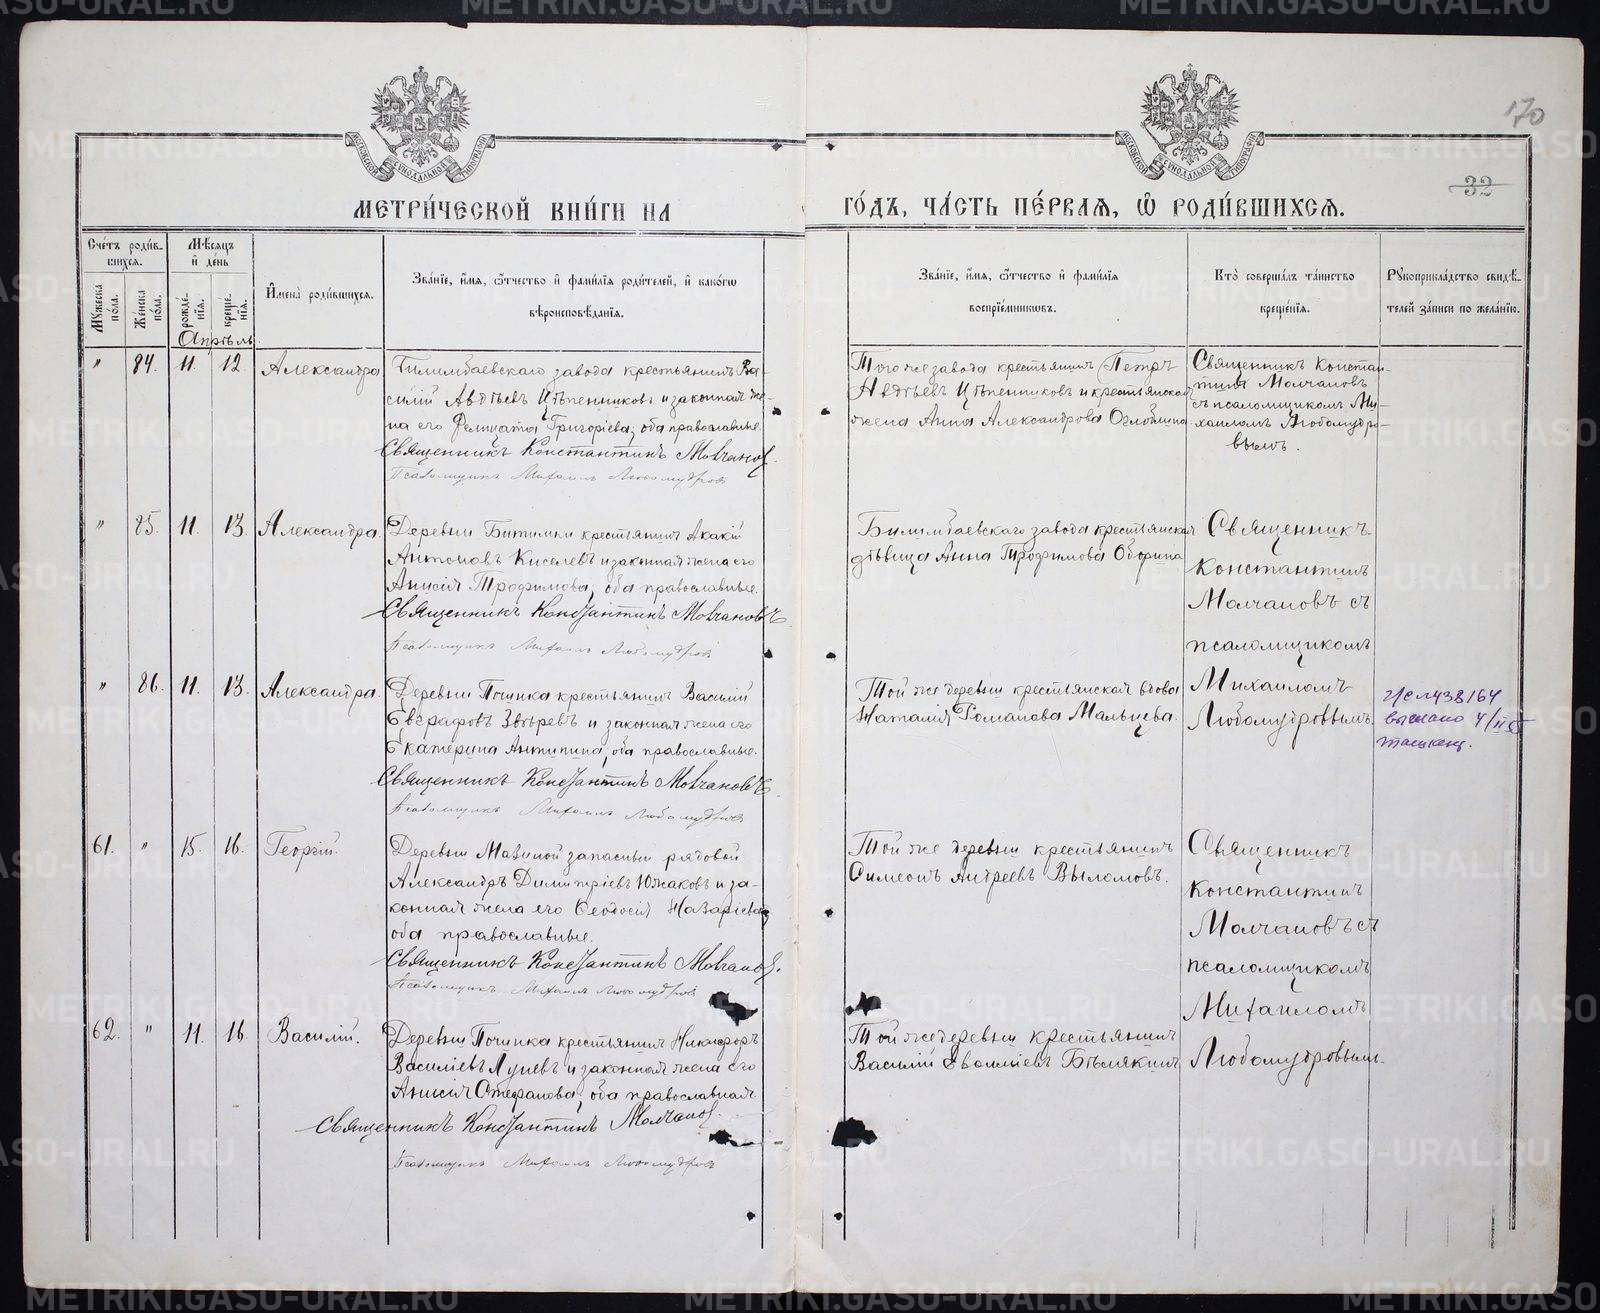 170
32
МОСКОВСКОЙ СѴНОДАЛЬНОЙ ТИПОГРАФІИ
МОСКОВСКОЙ СѴНОДАЛЬНОЙ ТИПОГРАФІИ
МЕТРИ́ЧЕСКОЙ КНИ́ГИ НА
ГО́ДЪ, ЧА́СТЬ ПЕ́РВАЯ, Ѡ РОДИ́ВШИХСЯ.
Сче́тъ роди́в-
шихся.
Мꙋжеска по́ла.
Же́нска по́ла.
Мѣ́сяцъ и́ де́нь
рожде́нїя.
креще́нїя.
И҆мена̀ роди́вшихся.
Зва́нїе, и҆́мя, ѻ҆́тчество и҆ фами́лїя роди́телей, и҆ како́гѡ
вѣроисповѣ́данїя.
Зва́нїе, и҆́мя, ѻ҆́тчество и҆ фами́лїя
воспрїе́мникѡвъ.
Кто̀ соверша́лъ та́инство
креще́нїя.
Рꙋкоприкла́дство свидѣ́-
телей за́писи по жела́нїю.
Апрѣль
" 84. 11. 12. Александра
Билимбаевскаго завода крестьянинъ Ва-
силій Авдѣевъ Цѣпенниковъ и законная же-
на его Фелицата Григоріева, оба православные.
Священникъ Константинъ Молчановъ
Псаломщикъ Михаилъ Любомудровъ
Того же завода крестьянинъ Петръ
Авдѣевъ Цѣпенниковъ и крестьянская
жена Анна Александрова Оглоблина
Священникъ Констан-
тинъ Молчановъ
съ псаломщикомъ Ми-
хаиломъ Любомудро-
вымъ.
" 85. 11. 13. Александра.
Деревни Битимки крестьянинъ Акакій
Антоновъ Киселевъ и законная жена его
Анисія Трофимова, оба православные.
Священникъ Константинъ Молчановъ
Псаломщикъ Михаилъ Любомудровъ
Билимбаевскаго завода крестьянская
дѣвица Анна Трофимова Оборина
Священникъ
Константинъ
Молчановъ съ
псаломщикомъ
Михаиломъ
Любомудровымъ.
" 86. 11. 13. Александра.
Деревни Починка крестьянинъ Василій
Евграфовъ Звѣревъ и законная жена его
Екатерина Антипина, оба православные.
Священникъ Константинъ Молчановъ
Псаломщикъ Михаилъ Любомудровъ
Той же деревни крестьянская вдова
Наталія Романова Мальцева.
выслано 4/II
61. " 15. 16. Георгій.
Деревни Мазиной запасный рядовой
Александръ Димитріевъ Южаковъ и за-
конная жена его Ѳеодосія Назаріева,
оба православные.
Священникъ Константинъ Молчановъ.
Псаломщикъ Михаилъ Любомудровъ
Той же деревни крестьянинъ
Симеонъ Андреевъ Выломовъ.
Священникъ
Константинъ
Молчановъ съ
псаломщикомъ
Михаиломъ
Любомудровымъ.
62. " 11. 16. Василій.
Деревни Починка крестьянинъ Никифоръ
Василіевъ Лупевъ и законная жена его
Анисія Стефанова, оба православная
Священникъ Константинъ Молчановъ.
Псаломщикъ Михаилъ Любомудровъ
Той же деревни крестьянинъ
Василій